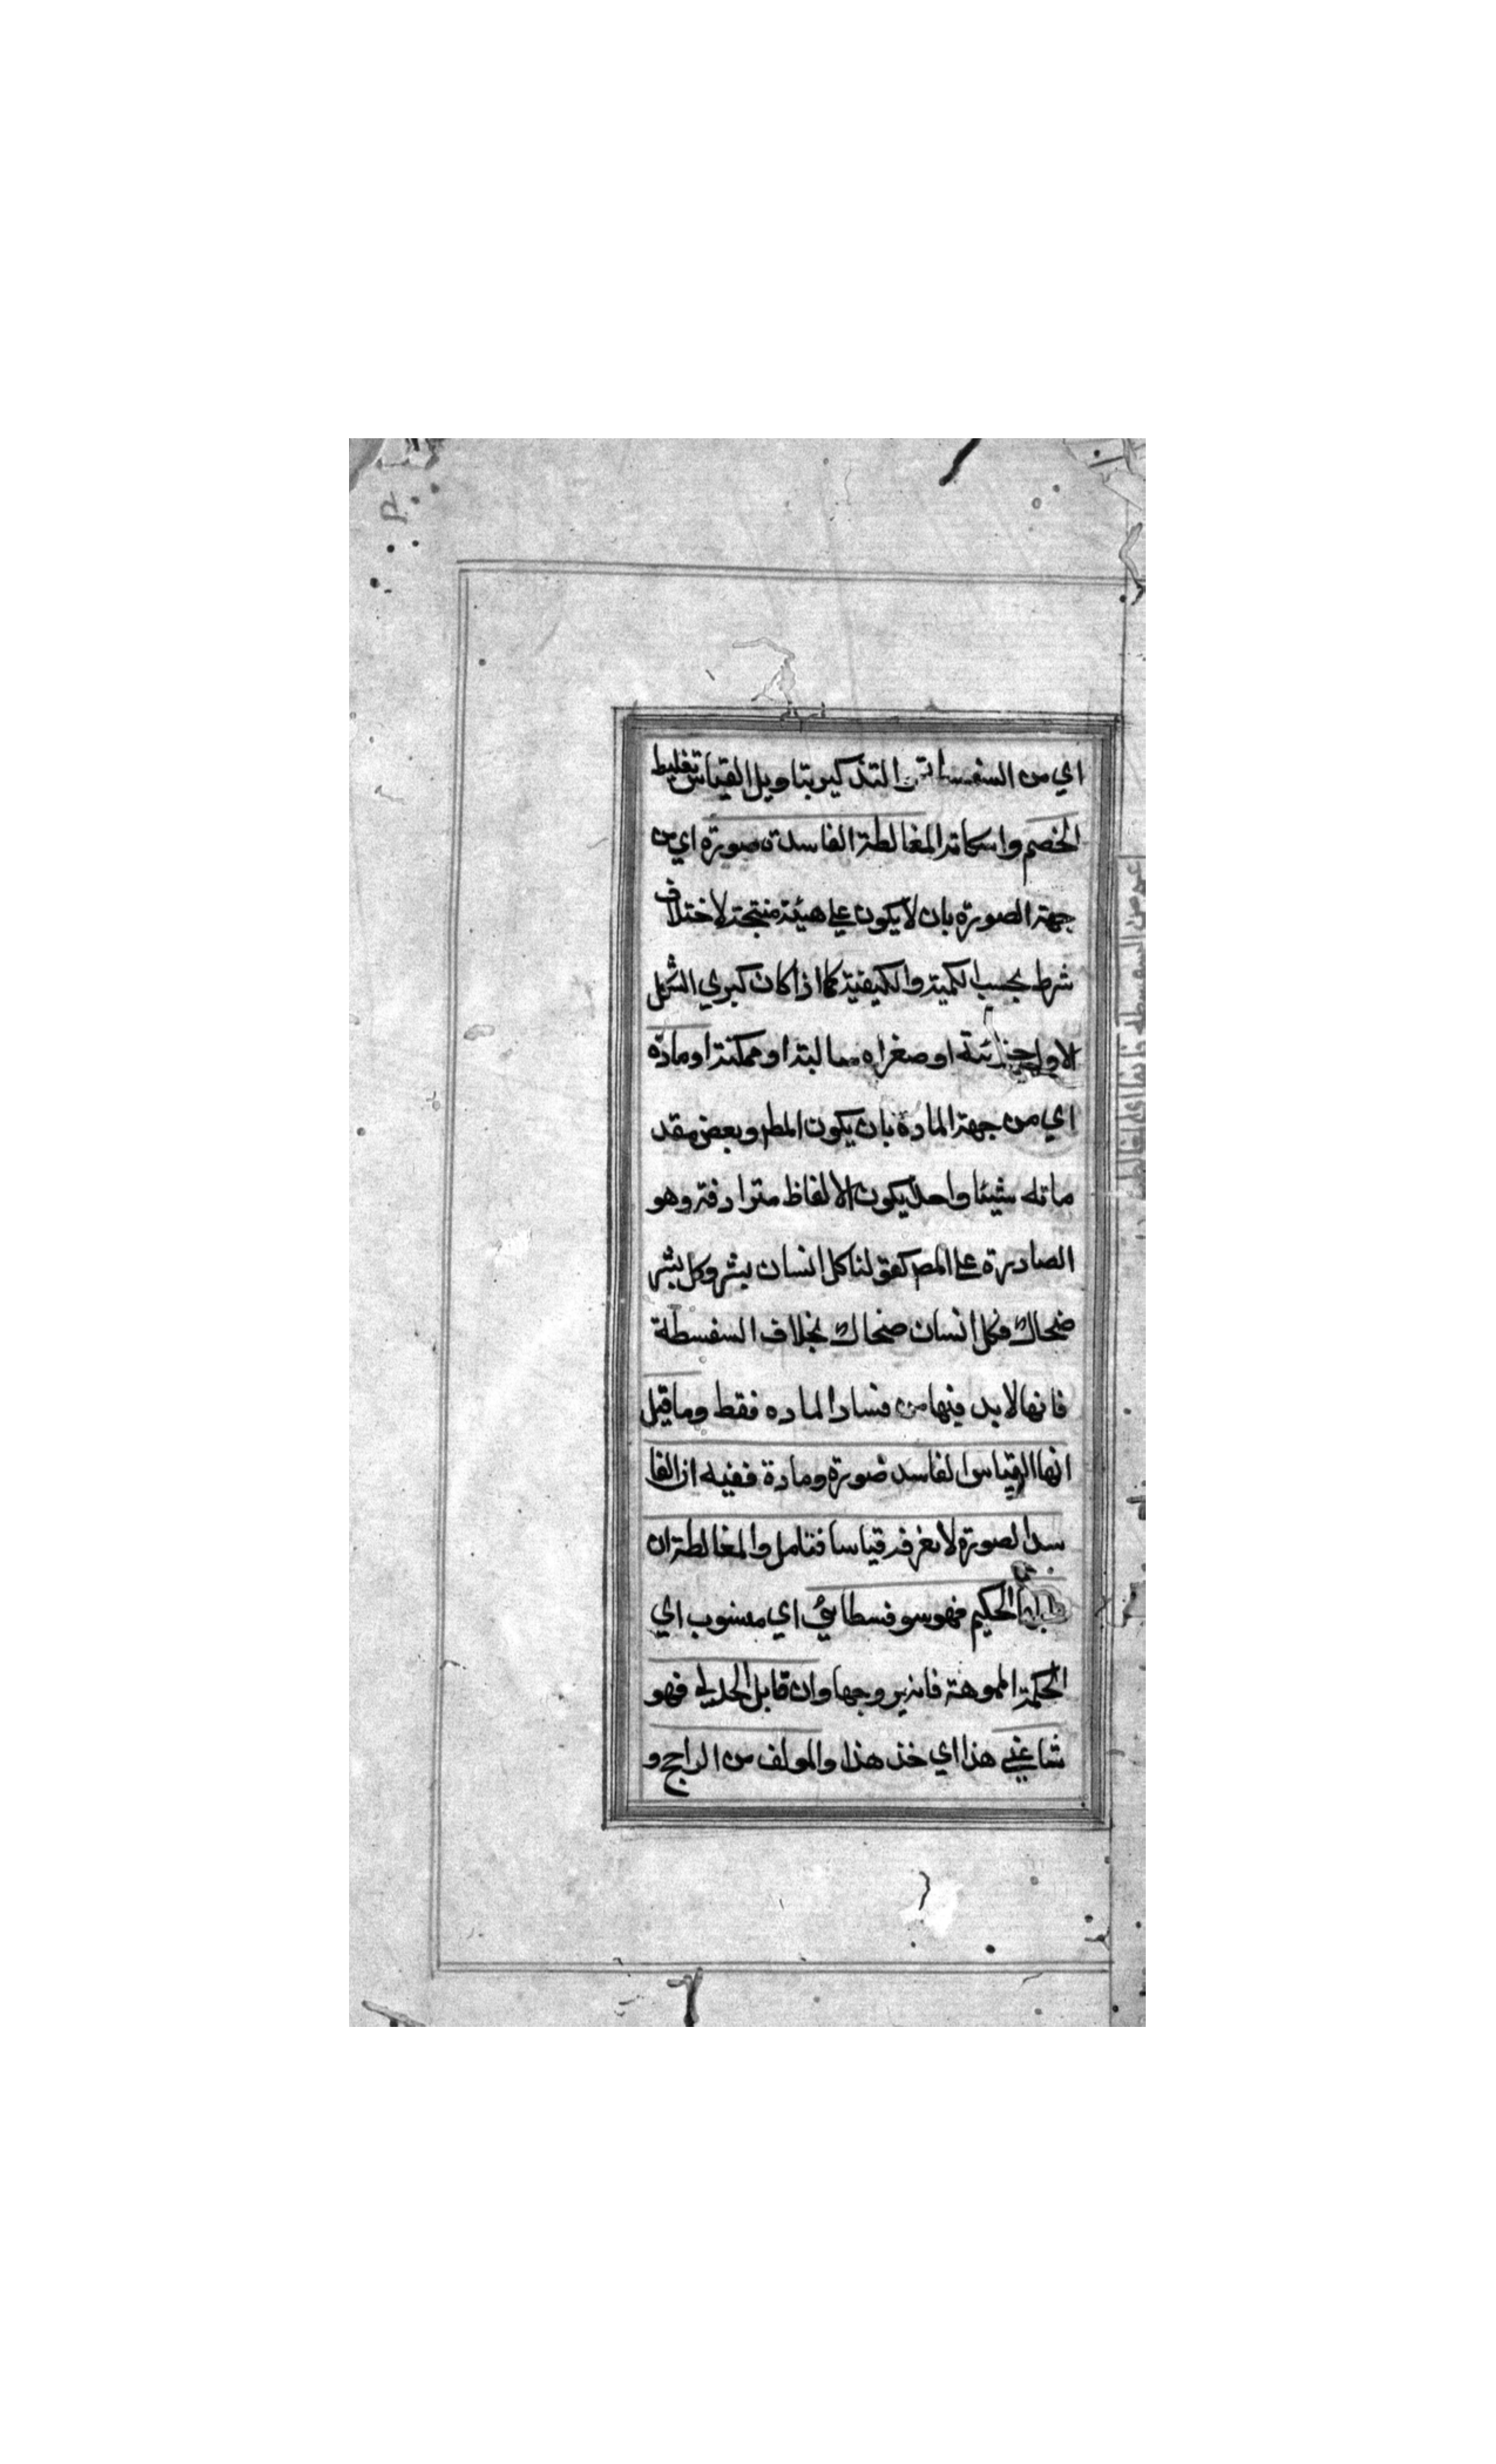 اي من السفسطة والتذكير بتاويل القياس تغليط
الخصم واسكاته المغالطة الفاسدة صورة اي من
جهة الصورة بان لا يكون علي هيئة منتجة لاختلاف
شرط بحسب الكمية والكيفية كما اذا كان كبري الشكل
الاول جزائية او صغراه سالبة او ممكنة او مادة
اي من جهة المادة بان يكون المط وبعض مقد
ماته شيئا واحدا يكون الالفاظ مترادفة وهو
الصادرة علي المص كقولنا كل انسان بشر وكل بشر
ضحاك فكل انسان ضحاك بخلاف السفسطة
فانها لا بد فيها من فساد الماده فقط وما قيل
انها القياس الفاسد صورة ومادة ففيه ان الفا
سد الصورة لا يعرفه قياسا فتامل والمغالطة ان
قابل الحكيم فهو سوفسطائي اي منسوب اي
الحكمة المموهة فانه يروجها وان قابل الجدلي فهو
شاغبي هذا اي خذ هذا والمولف من الراجح و
اعم من السفسطة